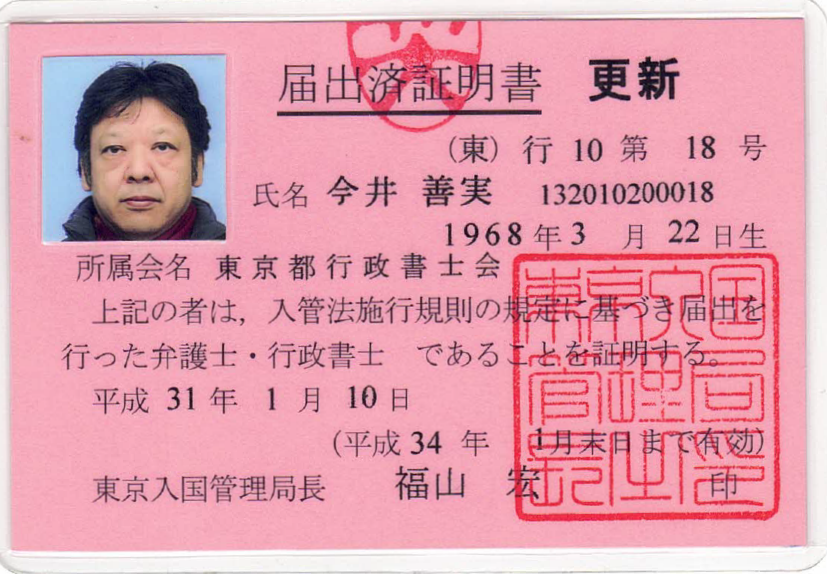 届出済証明書 更新
(東) 行 10 第 18 号
氏名 今井 善実 132010200018
1968 年 3 月 22 日生
所属会名 東京都行政書士会
上記の者は，入管法施行規則の規定に基づき届出を
行った弁護士・行政書士 であることを証明する。
平成 31 年 1 月 10 日
(平成 34 年 1月末日まで有効)
東京入国管理局長 福山 宏 印
東京入国管理局長之印